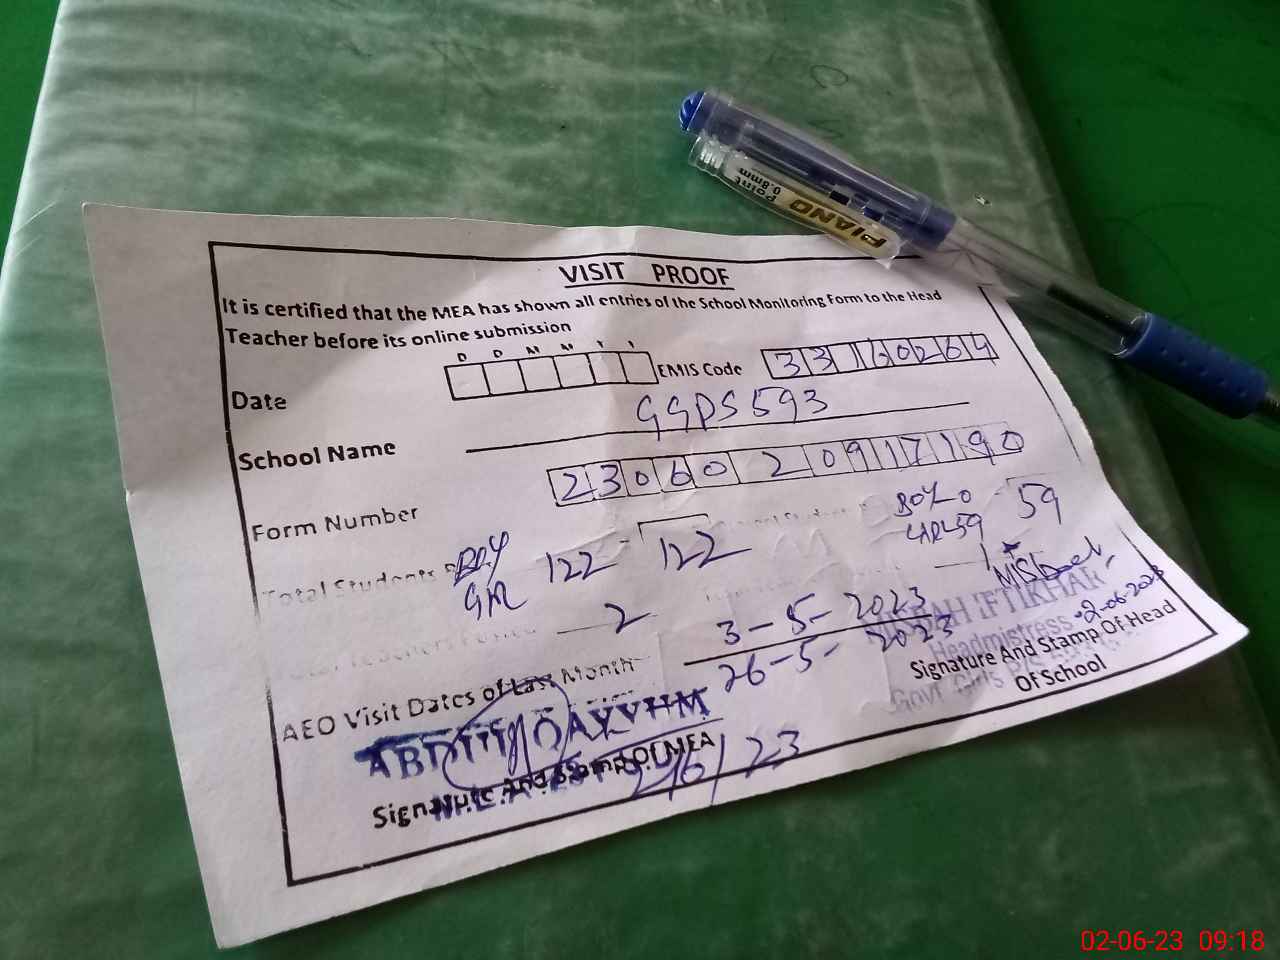 VISIT PROOF
It is certified that the MEA has shown all entries of the School Monitoring Form to the Head
Teacher before its online submission
D D M M Y Y
Date EMIS Code 33160264
School Name GGPS 593
Form Number 23060 20917190
Total Students 122 122 Boy 0 59
2
AEO Visit Dates of Last Month 3-5-2023
26-5-2023
MISBAH IFTIKHAR
Headmistress 2-06-2023
Signature And Stamp Of Head
Of School
Govt Girls
ABDUL QAYYUM
Signature And Stamp Of MEA
2/6/23
PIANO
Point
0.8mm
02-06-23 09:18